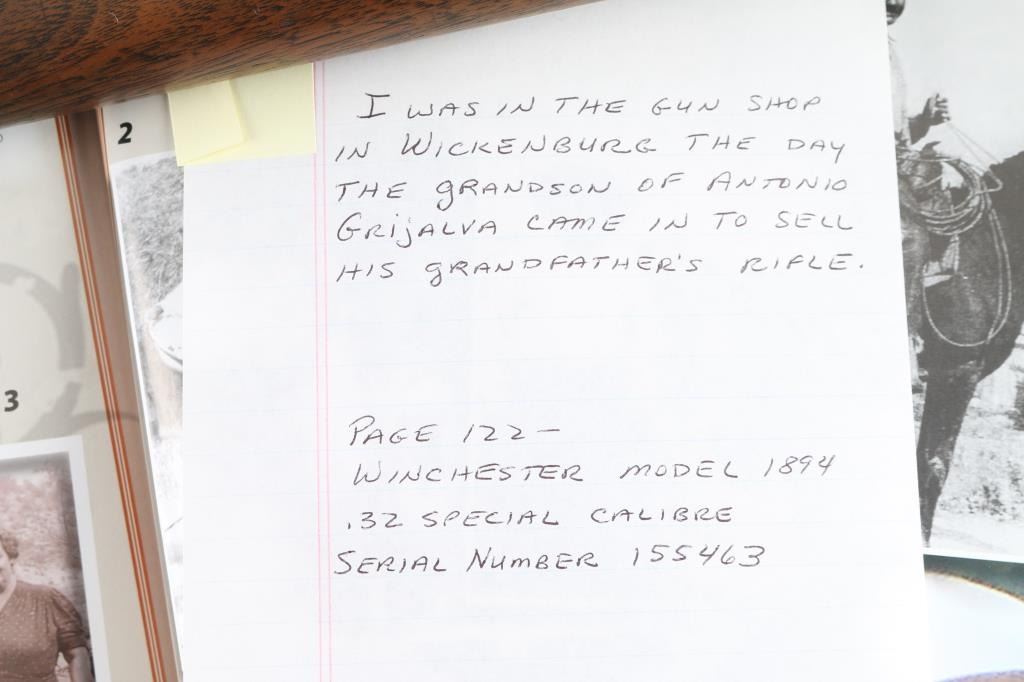 2
3
I WAS IN THE GUN SHOP
IN WICKENBURG THE DAY
THE GRANDSON OF ANTONIO
GRIJALVA CAME IN TO SELL
HIS GRANDFATHER'S RIFLE.
PAGE 122-
WINCHESTER MODEL 1894
.32 SPECIAL CALIBRE
SERIAL NUMBER 155463